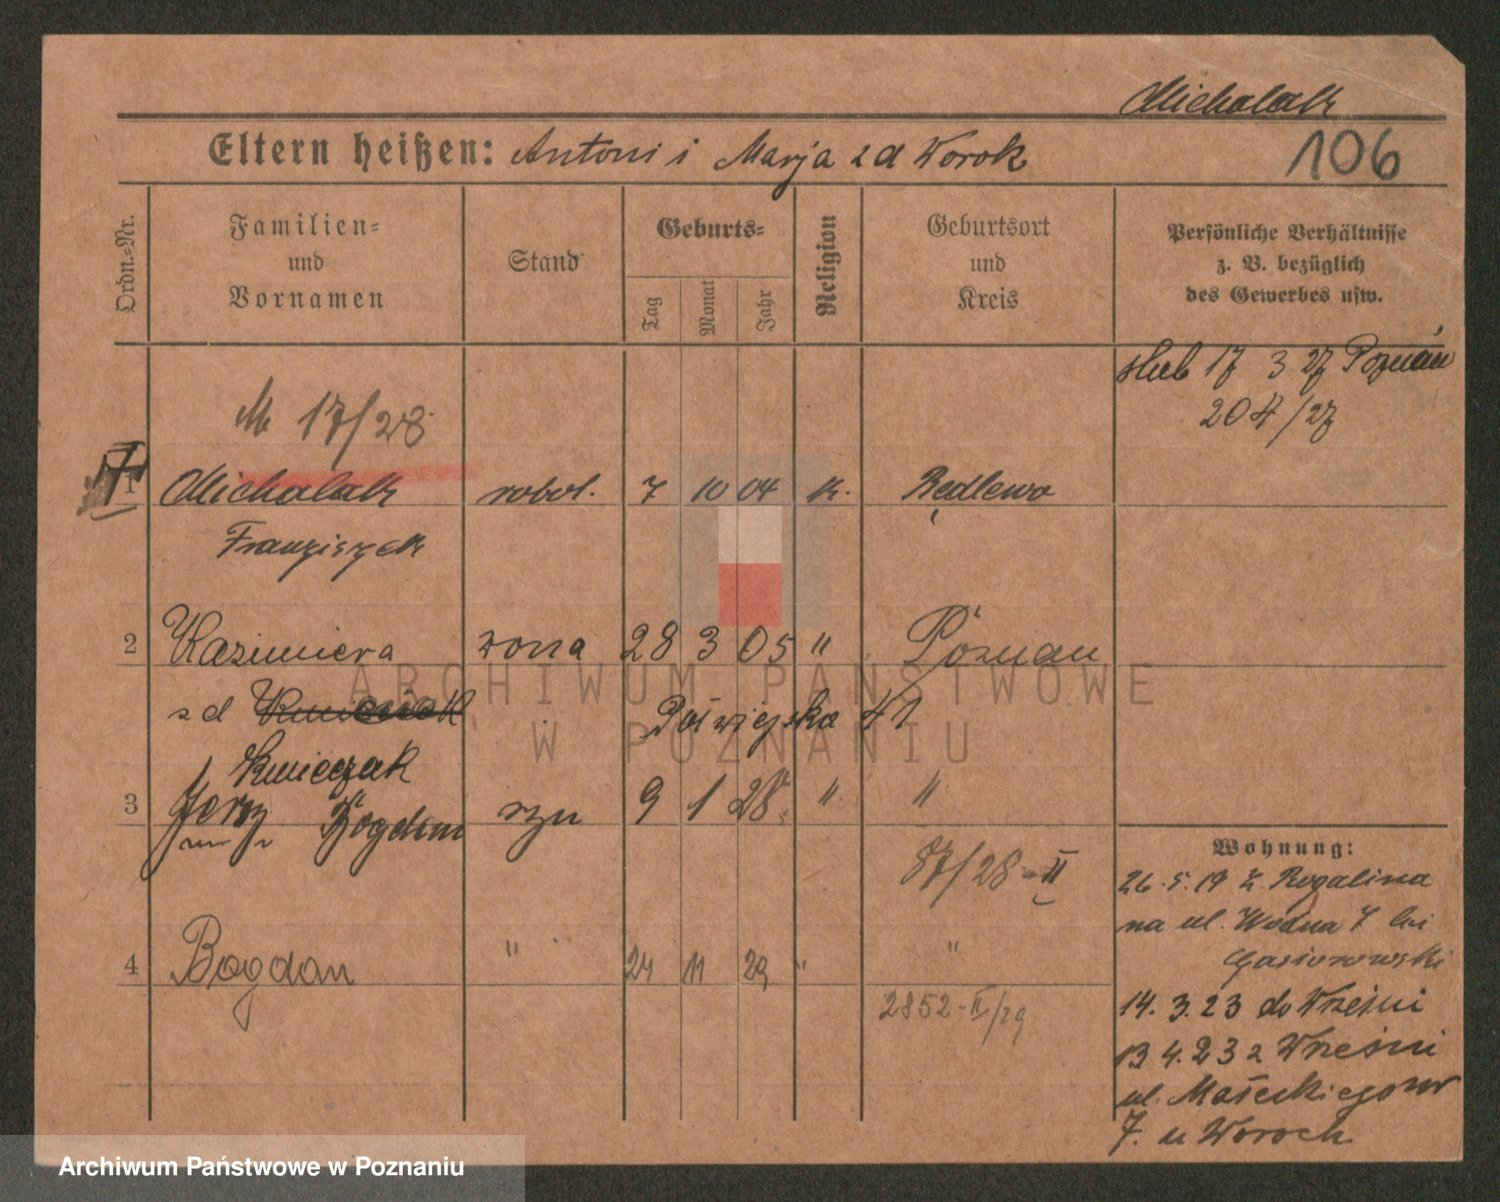 Michalak
Eltern heißen: Antoni i Marja z d Worok
106
Ordn.-Nr.
Familien- und Vornamen
Stand
Geburts-
Tag
Monat
Jahr
Religion
Geburtsort und Kreis
Persönliche Verhältnisse
z. B. bezüglich
des Gewerbes usw.
ślub 17 3 27 Poznań
204/27
M 17/28
1 Michalak robot. 7 10 04 k.
Franciszek
2 Kazimiera żona 28 3 05 " Poznań
z d
Kwieczak
3 Jerzy Bogdan syn 9 1 28. " "
87/28-II
4 Bogdan " 24 11 29 " "
2852-II/29
Wohnung:
26.5.19 z. Rogalina
na ul. Wodna 7
Gasiorowski
14.3.23 do Wrześni
13 4.23 z Wrześni
ul. Małeckiego
7. u Woroch
ARCHIWUM PAŃSTWOWE
W POZNANIU
Archiwum Państwowe w Poznaniu